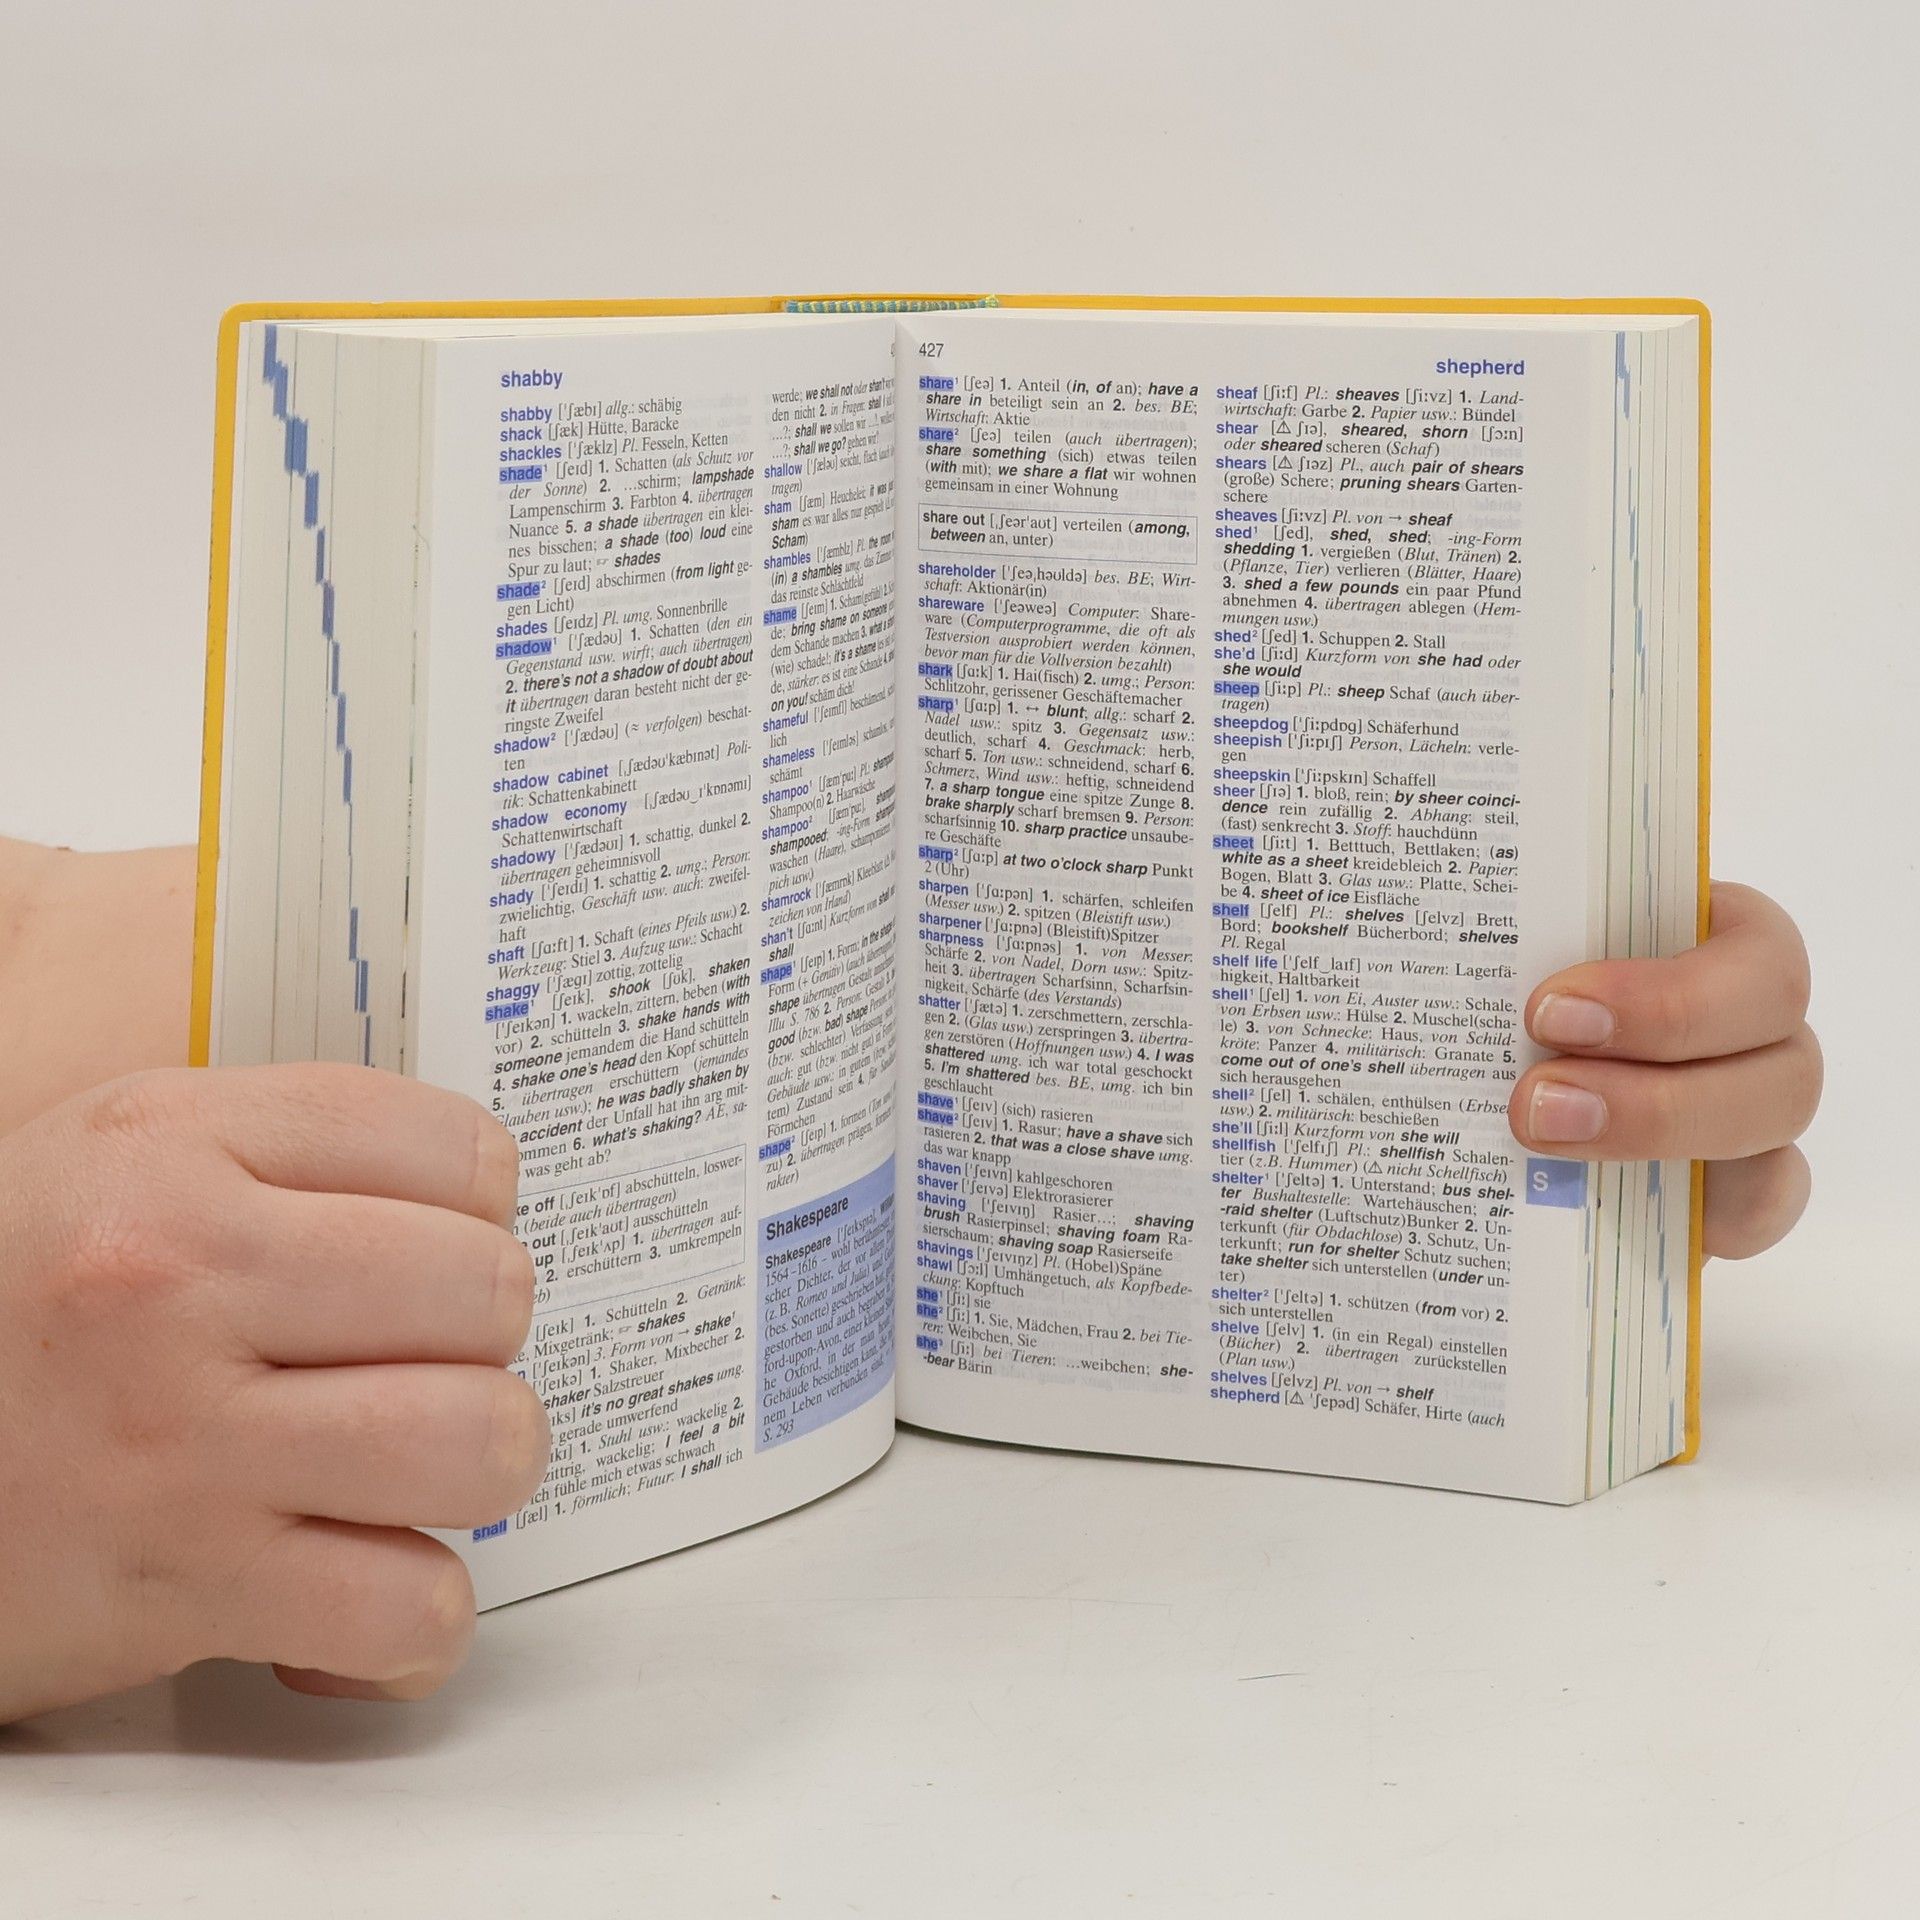 shabby
shabby [ˈʃæbɪ] allg.: schäbig
shack [ʃæk] Hütte, Baracke
shackles [ˈʃæklz] Pl. Fesseln, Ketten
shade¹ [ʃeɪd] 1. Schatten (als Schutz vor
der Sonne) 2. ...schirm; lampshade
Lampenschirm 3. Farbton 4. übertragen
Nuance 5. a shade übertragen ein klei-
nes bisschen; a shade (too) loud eine
Spur zu laut; ☞ shades
shade² [ʃeɪd] abschirmen (from light ge-
gen Licht)
shades [ʃeɪdz] Pl. umg. Sonnenbrille
shadow¹ [ˈʃædəʊ] 1. Schatten (den ein
Gegenstand usw. wirft; auch übertragen)
2. there's not a shadow of doubt about
it übertragen daran besteht nicht der ge-
ringste Zweifel
shadow² [ˈʃædəʊ] (≈ verfolgen) beschat-
ten
shadow cabinet [ˌʃædəʊˈkæbɪnət] Poli-
tik: Schattenkabinett
shadow economy [ˌʃædəʊ‿ɪˈkɒnəmɪ]
Schattenwirtschaft
shadowy [ˈʃædəʊɪ] 1. schattig, dunkel 2.
übertragen geheimnisvoll
shady [ˈʃeɪdɪ] 1. schattig 2. umg.; Person:
zwielichtig, Geschäft usw. auch: zweifel-
haft
shaft [ʃɑːft] 1. Schaft (eines Pfeils usw.) 2.
Werkzeug: Stiel 3. Aufzug usw.: Schacht
shaggy [ˈʃægɪ] zottig, zottelig
shake¹ [ʃeɪk], shook [ʃʊk], shaken
[ˈʃeɪkən] 1. wackeln, zittern, beben (with
vor) 2. schütteln 3. shake hands with
someone jemandem die Hand schütteln
4. shake one's head den Kopf schütteln
5. übertragen erschüttern (jemandes
Glauben usw.); he was badly shaken by
accident der Unfall hat ihn arg mit-
ommen 6. what's shaking? AE, sa-
was geht ab?
ke off [ˌʃeɪkˈɒf] abschütteln, loswer-
(beide auch übertragen)
out [ˌʃeɪkˈaʊt] ausschütteln
up [ˌʃeɪkˈʌp] 1. übertragen auf-
2. erschüttern 3. umkrempeln
eb)
[ʃeɪk] 1. Schütteln 2. Getränk:
Mixgetränk; ☞ shakes
[ˈʃeɪkən] 3. Form von → shake¹
[ˈʃeɪkə] 1. Shaker, Mixbecher 2.
shaker Salzstreuer
iks] it's no great shakes umg.
gerade umwerfend
ɪkɪ] 1. Stuhl usw.: wackelig 2.
zittrig, wackelig; I feel a bit
ich fühle mich etwas schwach
shall [ʃæl] 1. förmlich; Futur: I shall ich
werde; we shall not oder shan't
den nicht 2. in Fragen: shall I
...?; shall we sollen wir ...?,
...?; shall we go? gehen wir?
shallow [ˈʃæləʊ] seicht, flach
tragen)
sham [ʃæm] Heuchelei; it was
sham es war alles nur gespielt
Scham)
shambles [ˈʃæmblz] Pl. the room
(in) a shambles umg. das Zimmer
das reinste Schlachtfeld
shame [ʃeɪm] 1. Scham(gefühl) 2.
de; bring shame on someone
dem Schande machen 3. what a
(wie) schade!; it's a shame
de, stärker: es ist eine Schande 4.
on you! schäm dich!
shameful [ˈʃeɪmfl] beschämend,
lich
shameless [ˈʃeɪmləs] schamlos,
schämt
shampoo¹ [ʃæmˈpuː] Pl.:
Shampoo(n) 2. Haarwäsche
shampoo² [ʃæmˈpuː],
shampooed; -ing-Form
waschen (Haare), schamponieren
pich usw.)
shamrock [ˈʃæmrɒk] Kleeblatt
zeichen von Irland)
shan't [ʃɑːnt] Kurzform von shall
shall
shape¹ [ʃeɪp] 1. Form; in the shape
Form (+ Genitiv) (auch übertragen)
shape übertragen Gestalt
Illu S. 786 2. Person: Gestalt 3.
good (bzw. bad) shape Person
(bzw. schlechter) Verfassung
auch: gut (bzw. nicht gut) in Form
Gebäude usw.: in gutem
tem) Zustand sein 4. für
Förmchen
shape² [ʃeɪp] 1. formen (Ton
zu) 2. übertragen prägen, formen
rakter)
Shakespeare
Shakespeare [ˈʃeɪkspɪə],
1564–1616 – wohl berühmtester
scher Dichter, der vor allem
(z. B. Romeo und Julia) und
(bes. Sonette) geschrieben hat,
gestorben und auch begraben
ford-upon-Avon, einer kleinen
he Oxford, in der man
Gebäude besichtigen kann,
nem Leben verbunden sind.
S. 293
427
shepherd
share¹ [ʃeə] 1. Anteil (in, of an); have a
share in beteiligt sein an 2. bes. BE;
Wirtschaft: Aktie
share² [ʃeə] teilen (auch übertragen);
share something (sich) etwas teilen
(with mit); we share a flat wir wohnen
gemeinsam in einer Wohnung
share out [ˌʃeərˈaʊt] verteilen (among,
between an, unter)
shareholder [ˈʃeəˌhəʊldə] bes. BE; Wirt-
schaft: Aktionär(in)
shareware [ˈʃeəweə] Computer: Share-
ware (Computerprogramme, die oft als
Testversion ausprobiert werden können,
bevor man für die Vollversion bezahlt)
shark [ʃɑːk] 1. Hai(fisch) 2. umg.; Person:
Schlitzohr, gerissener Geschäftemacher
sharp¹ [ʃɑːp] 1. ↔ blunt; allg.: scharf 2.
Nadel usw.: spitz 3. Gegensatz usw.:
deutlich, scharf 4. Geschmack: herb,
scharf 5. Ton usw.: schneidend, scharf 6.
Schmerz, Wind usw.: heftig, schneidend
7. a sharp tongue eine spitze Zunge 8.
brake sharply scharf bremsen 9. Person:
scharfsinnig 10. sharp practice unsaube-
re Geschäfte
sharp² [ʃɑːp] at two o'clock sharp Punkt
2 (Uhr)
sharpen [ˈʃɑːpən] 1. schärfen, schleifen
(Messer usw.) 2. spitzen (Bleistift usw.)
sharpener [ˈʃɑːpnə] (Bleistift)Spitzer
sharpness [ˈʃɑːpnəs] 1. von Messer:
Schärfe 2. von Nadel, Dorn usw.: Spitz-
heit 3. übertragen Scharfsinn, Scharfsin-
nigkeit, Schärfe (des Verstands)
shatter [ˈʃætə] 1. zerschmettern, zerschla-
gen 2. (Glas usw.) zerspringen 3. übertra-
gen zerstören (Hoffnungen usw.) 4. I was
shattered umg. ich war total geschockt
5. I'm shattered bes. BE, umg. ich bin
geschlaucht
shave¹ [ʃeɪv] (sich) rasieren
shave² [ʃeɪv] 1. Rasur; have a shave sich
rasieren 2. that was a close shave umg.
das war knapp
shaven [ˈʃeɪvn] kahlgeschoren
shaver [ˈʃeɪvə] Elektrorasierer
shaving [ˈʃeɪvɪŋ] Rasier...; shaving
brush Rasierpinsel; shaving foam Ra-
sierschaum; shaving soap Rasierseife
shavings [ˈʃeɪvɪŋz] Pl. (Hobel)Späne
shawl [ʃɔːl] Umhängetuch, als Kopfbede-
ckung: Kopftuch
she¹ [ʃiː] sie
she² [ʃiː] 1. Sie, Mädchen, Frau 2. bei Tie-
ren: Weibchen, Sie
she³ [ʃiː] bei Tieren: ...weibchen; she-
-bear Bärin
sheaf [ʃiːf] Pl.: sheaves [ʃiːvz] 1. Land-
wirtschaft: Garbe 2. Papier usw.: Bündel
shear [⚠ ʃɪə], sheared, shorn [ʃɔːn]
oder sheared scheren (Schaf)
shears [⚠ ʃɪəz] Pl., auch pair of shears
(große) Schere; pruning shears Garten-
schere
sheaves [ʃiːvz] Pl. von → sheaf
shed¹ [ʃed], shed, shed; -ing-Form
shedding 1. vergießen (Blut, Tränen) 2.
(Pflanze, Tier) verlieren (Blätter, Haare)
3. shed a few pounds ein paar Pfund
abnehmen 4. übertragen ablegen (Hem-
mungen usw.)
shed² [ʃed] 1. Schuppen 2. Stall
she'd [ʃiːd] Kurzform von she had oder
she would
sheep [ʃiːp] Pl.: sheep Schaf (auch über-
tragen)
sheepdog [ˈʃiːpdɒg] Schäferhund
sheepish [ˈʃiːpɪʃ] Person, Lächeln: verle-
gen
sheepskin [ˈʃiːpskɪn] Schaffell
sheer [ʃɪə] 1. bloß, rein; by sheer coinci-
dence rein zufällig 2. Abhang: steil,
(fast) senkrecht 3. Stoff: hauchdünn
sheet [ʃiːt] 1. Betttuch, Bettlaken; (as)
white as a sheet kreidebleich 2. Papier:
Bogen, Blatt 3. Glas usw.: Platte, Schei-
be 4. sheet of ice Eisfläche
shelf [ʃelf] Pl.: shelves [ʃelvz] Brett,
Bord; bookshelf Bücherbord; shelves
Pl. Regal
shelf life [ˈʃelf‿laɪf] von Waren: Lagerfä-
higkeit, Haltbarkeit
shell¹ [ʃel] 1. von Ei, Auster usw.: Schale,
von Erbsen usw.: Hülse 2. Muschel(scha-
le) 3. von Schnecke: Haus, von Schild-
kröte: Panzer 4. militärisch: Granate 5.
come out of one's shell übertragen aus
sich herausgehen
shell² [ʃel] 1. schälen, enthülsen (Erbse
usw.) 2. militärisch: beschießen
she'll [ʃiːl] Kurzform von she will
shellfish [ˈʃelfɪʃ] Pl.: shellfish Schalen-
tier (z.B. Hummer) (⚠ nicht Schellfisch)
shelter¹ [ˈʃeltə] 1. Unterstand; bus shel-
ter Bushaltestelle: Wartehäuschen; air-
-raid shelter (Luftschutz)Bunker 2. Un-
terkunft (für Obdachlose) 3. Schutz, Un-
terkunft; run for shelter Schutz suchen;
take shelter sich unterstellen (under un-
ter)
shelter² [ˈʃeltə] 1. schützen (from vor) 2.
sich unterstellen
shelve [ʃelv] 1. (in ein Regal) einstellen
(Bücher) 2. übertragen zurückstellen
(Plan usw.)
shelves [ʃelvz] Pl. von → shelf
shepherd [⚠ ˈʃepəd] Schäfer, Hirte (auch
S